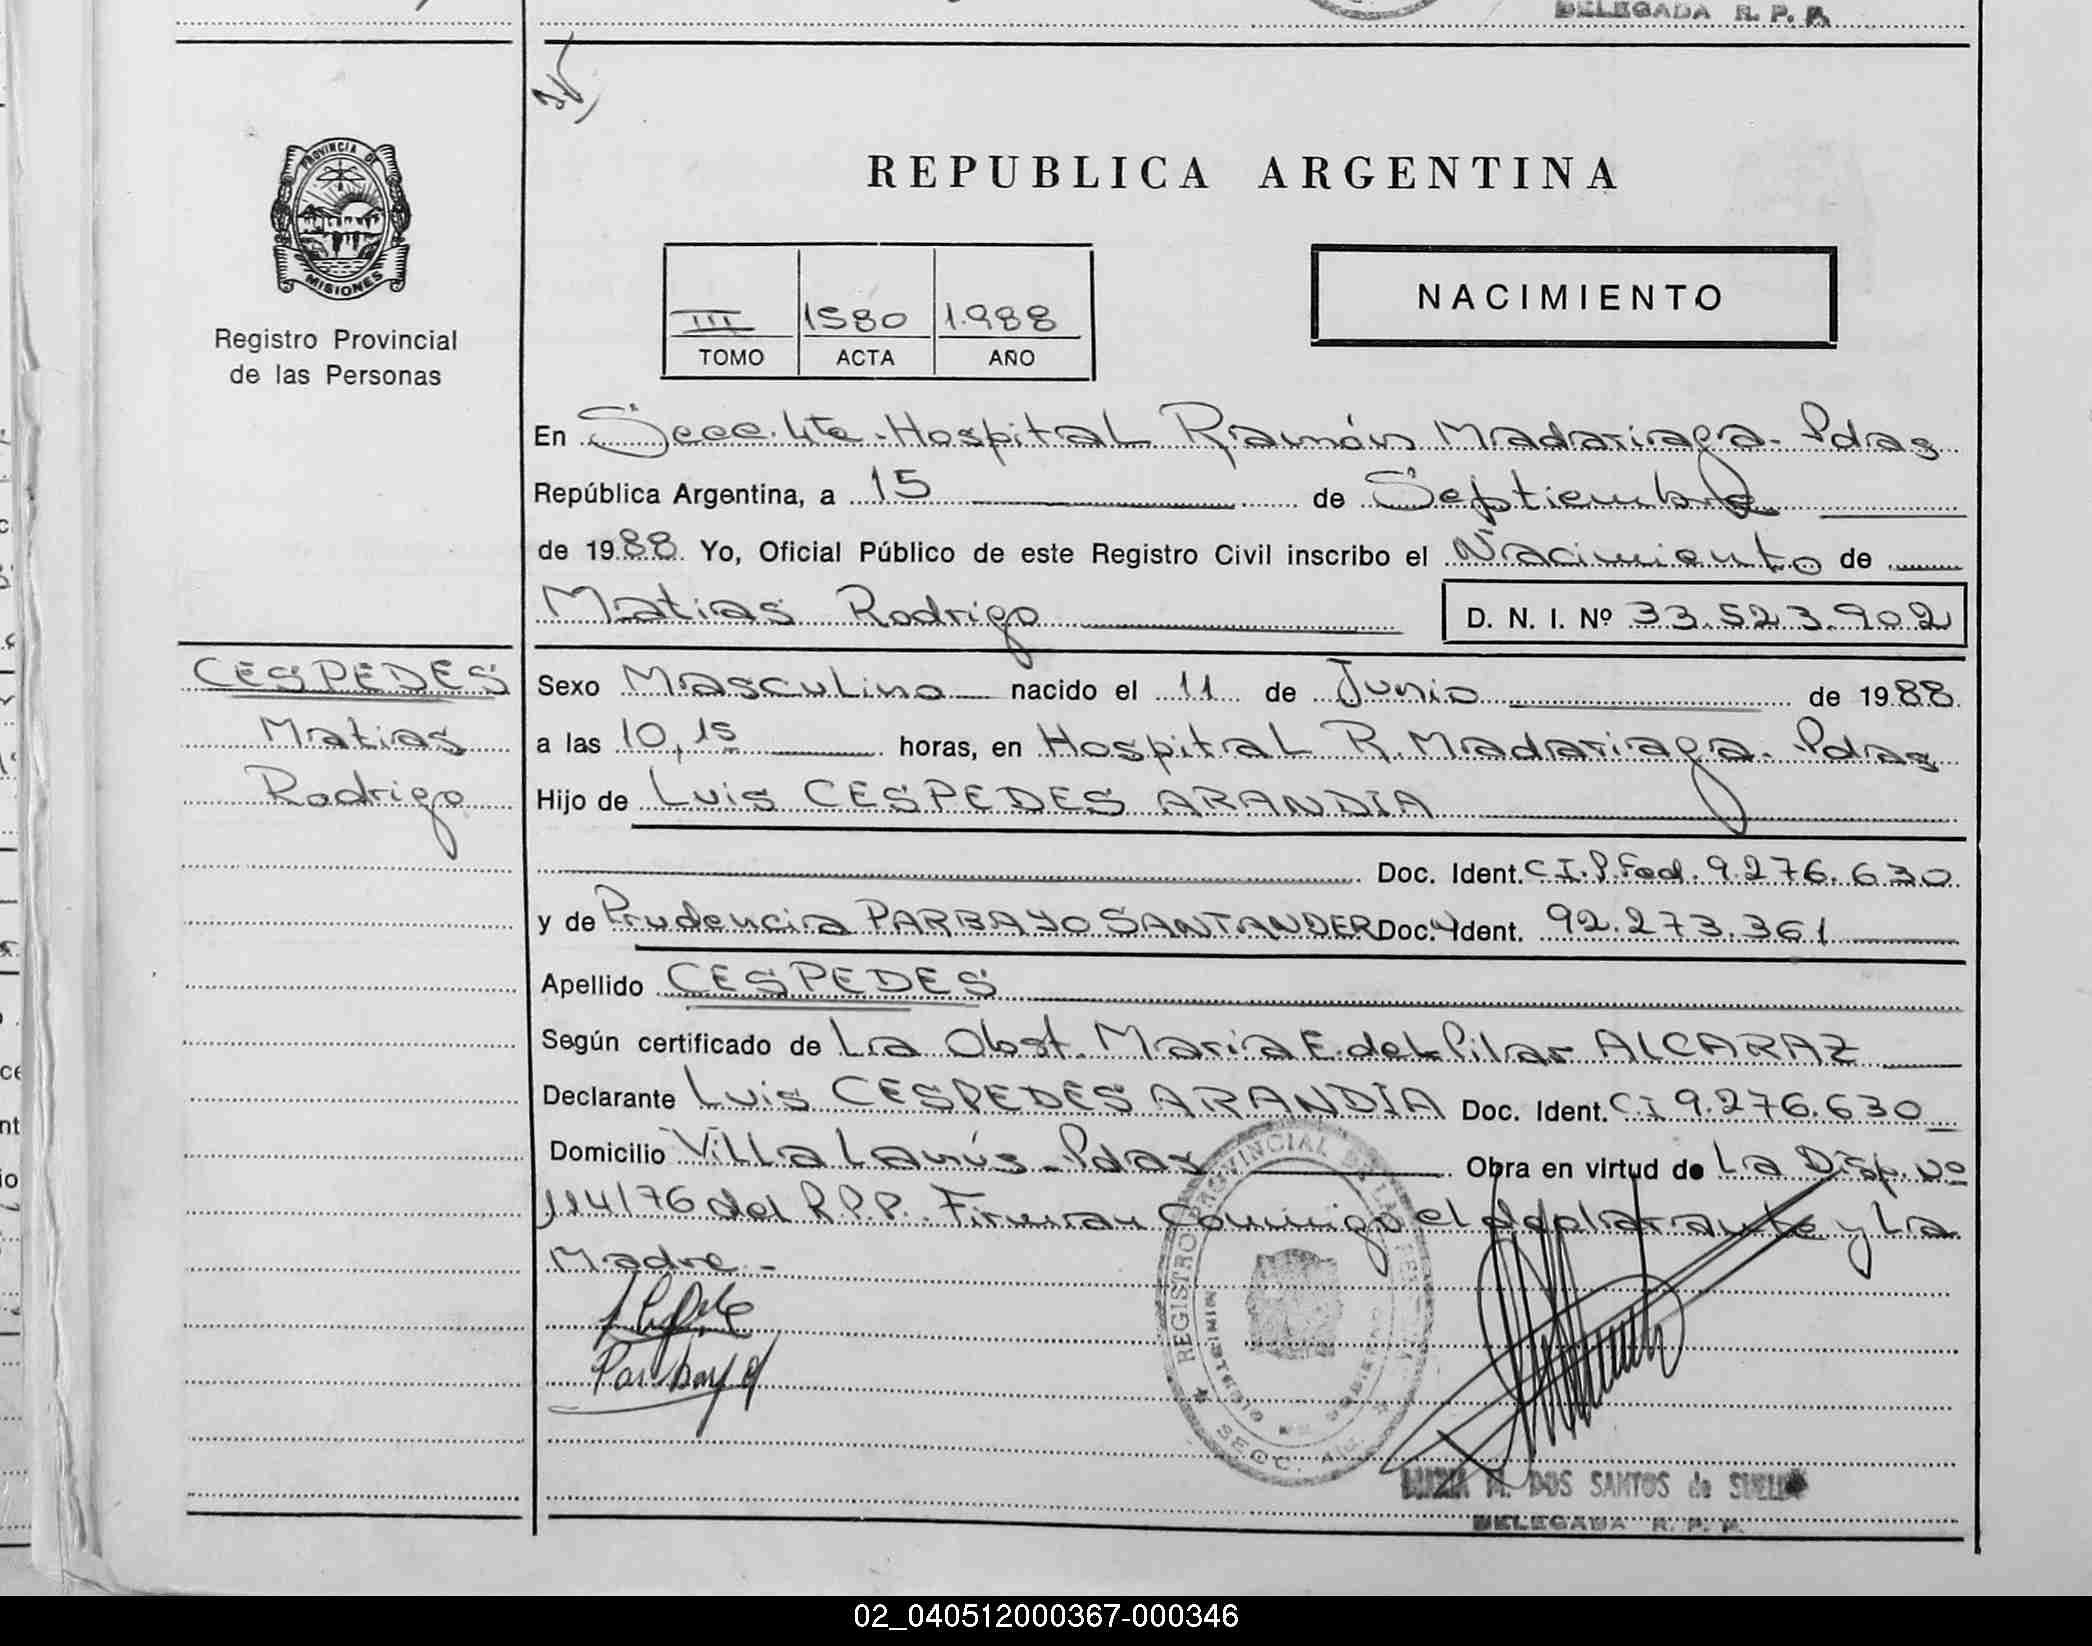 DELEGADA R. P. P.
PROVINCIA DE
MISIONES
Registro Provincial
de las Personas
REPUBLICA ARGENTINA
III 1580 1.988
TOMO ACTA AÑO
NACIMIENTO
En Secc. 4ta. Hospital Ramón Madariaga - Pdas
República Argentina, a 15 de Septiembre
de 1988 Yo, Oficial Público de este Registro Civil inscribo el Nacimiento de
Matias Rodrigo D. N. I. Nº 33.523.902
CESPEDES
Matias
Rodrigo
Sexo Masculino nacido el 11 de Junio de 1988
a las 10,15 horas, en Hospital R. Madariaga - Pdas
Hijo de Luis CESPEDES ARANDIA
Doc. Ident. C.I.P.Fed. 9.276.630
y de Prudencia PARBAYO SANTANDER Doc. Ident. 92.273.361
Apellido CESPEDES
Según certificado de La Obst. Maria E. del Pilar ALCARAZ
Declarante Luis CESPEDES ARANDIA Doc. Ident. C.I 9.276.630
Domicilio Villa Lanús - Pdas Obra en virtud de La Disp. Nº
114/76 del R.P.P. Firman Conmigo el declarante y La
Madre -
Parbayo
REGISTRO PROVINCIAL DE LAS
MINISTERIO DE GOBIERNO
SECC. 4ta.
M. DOS SANTOS de
DELEGADA R. P. P.
02_040512000367-000346